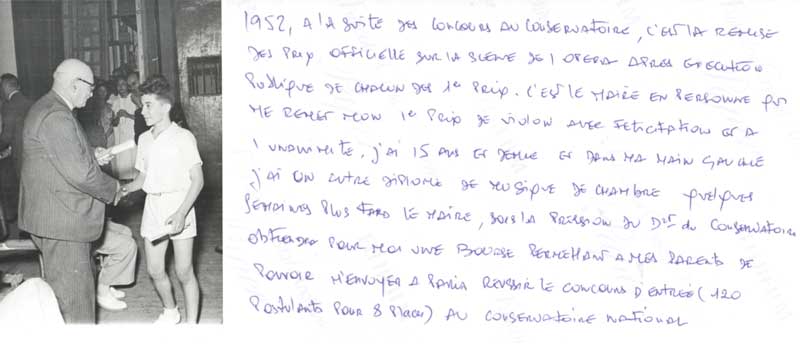 1952, A LA SUITE DES CONCOURS AU CONSERVATOIRE, C'EST LA REMISE
DES PRIX OFFICIELLE SUR LA SCENE DE L OPERA APRES EXECUTION
PUBLIQUE DE CHACUN DES 1er PRIX. C'EST LE MAIRE EN PERSONNE QUI
ME REMET MON 1er PRIX DE VIOLON AVEC FELICITATION ET A
l'UNANIMITE, J'AI 15 ANS ET DEMIE ET DANS MA MAIN GAUCHE
J'AI UN AUTRE DIPLOME DE MUSIQUE DE CHAMBRE QUELQUES
SEMAINES PLUS TARD LE MAIRE, SOUS LA PRESSION DU Dirt du CONSERVATOIRE
OBTIENDRA POUR MOI UNE BOURSE PERMETTANT A MES PARENTS DE
POUVOIR M'ENVOYER A PARIS REUSSIR LE CONCOURS D'ENTRÉE (120
Postulants POUR 8 Places) AU CONSERVATOIRE NATIONAL